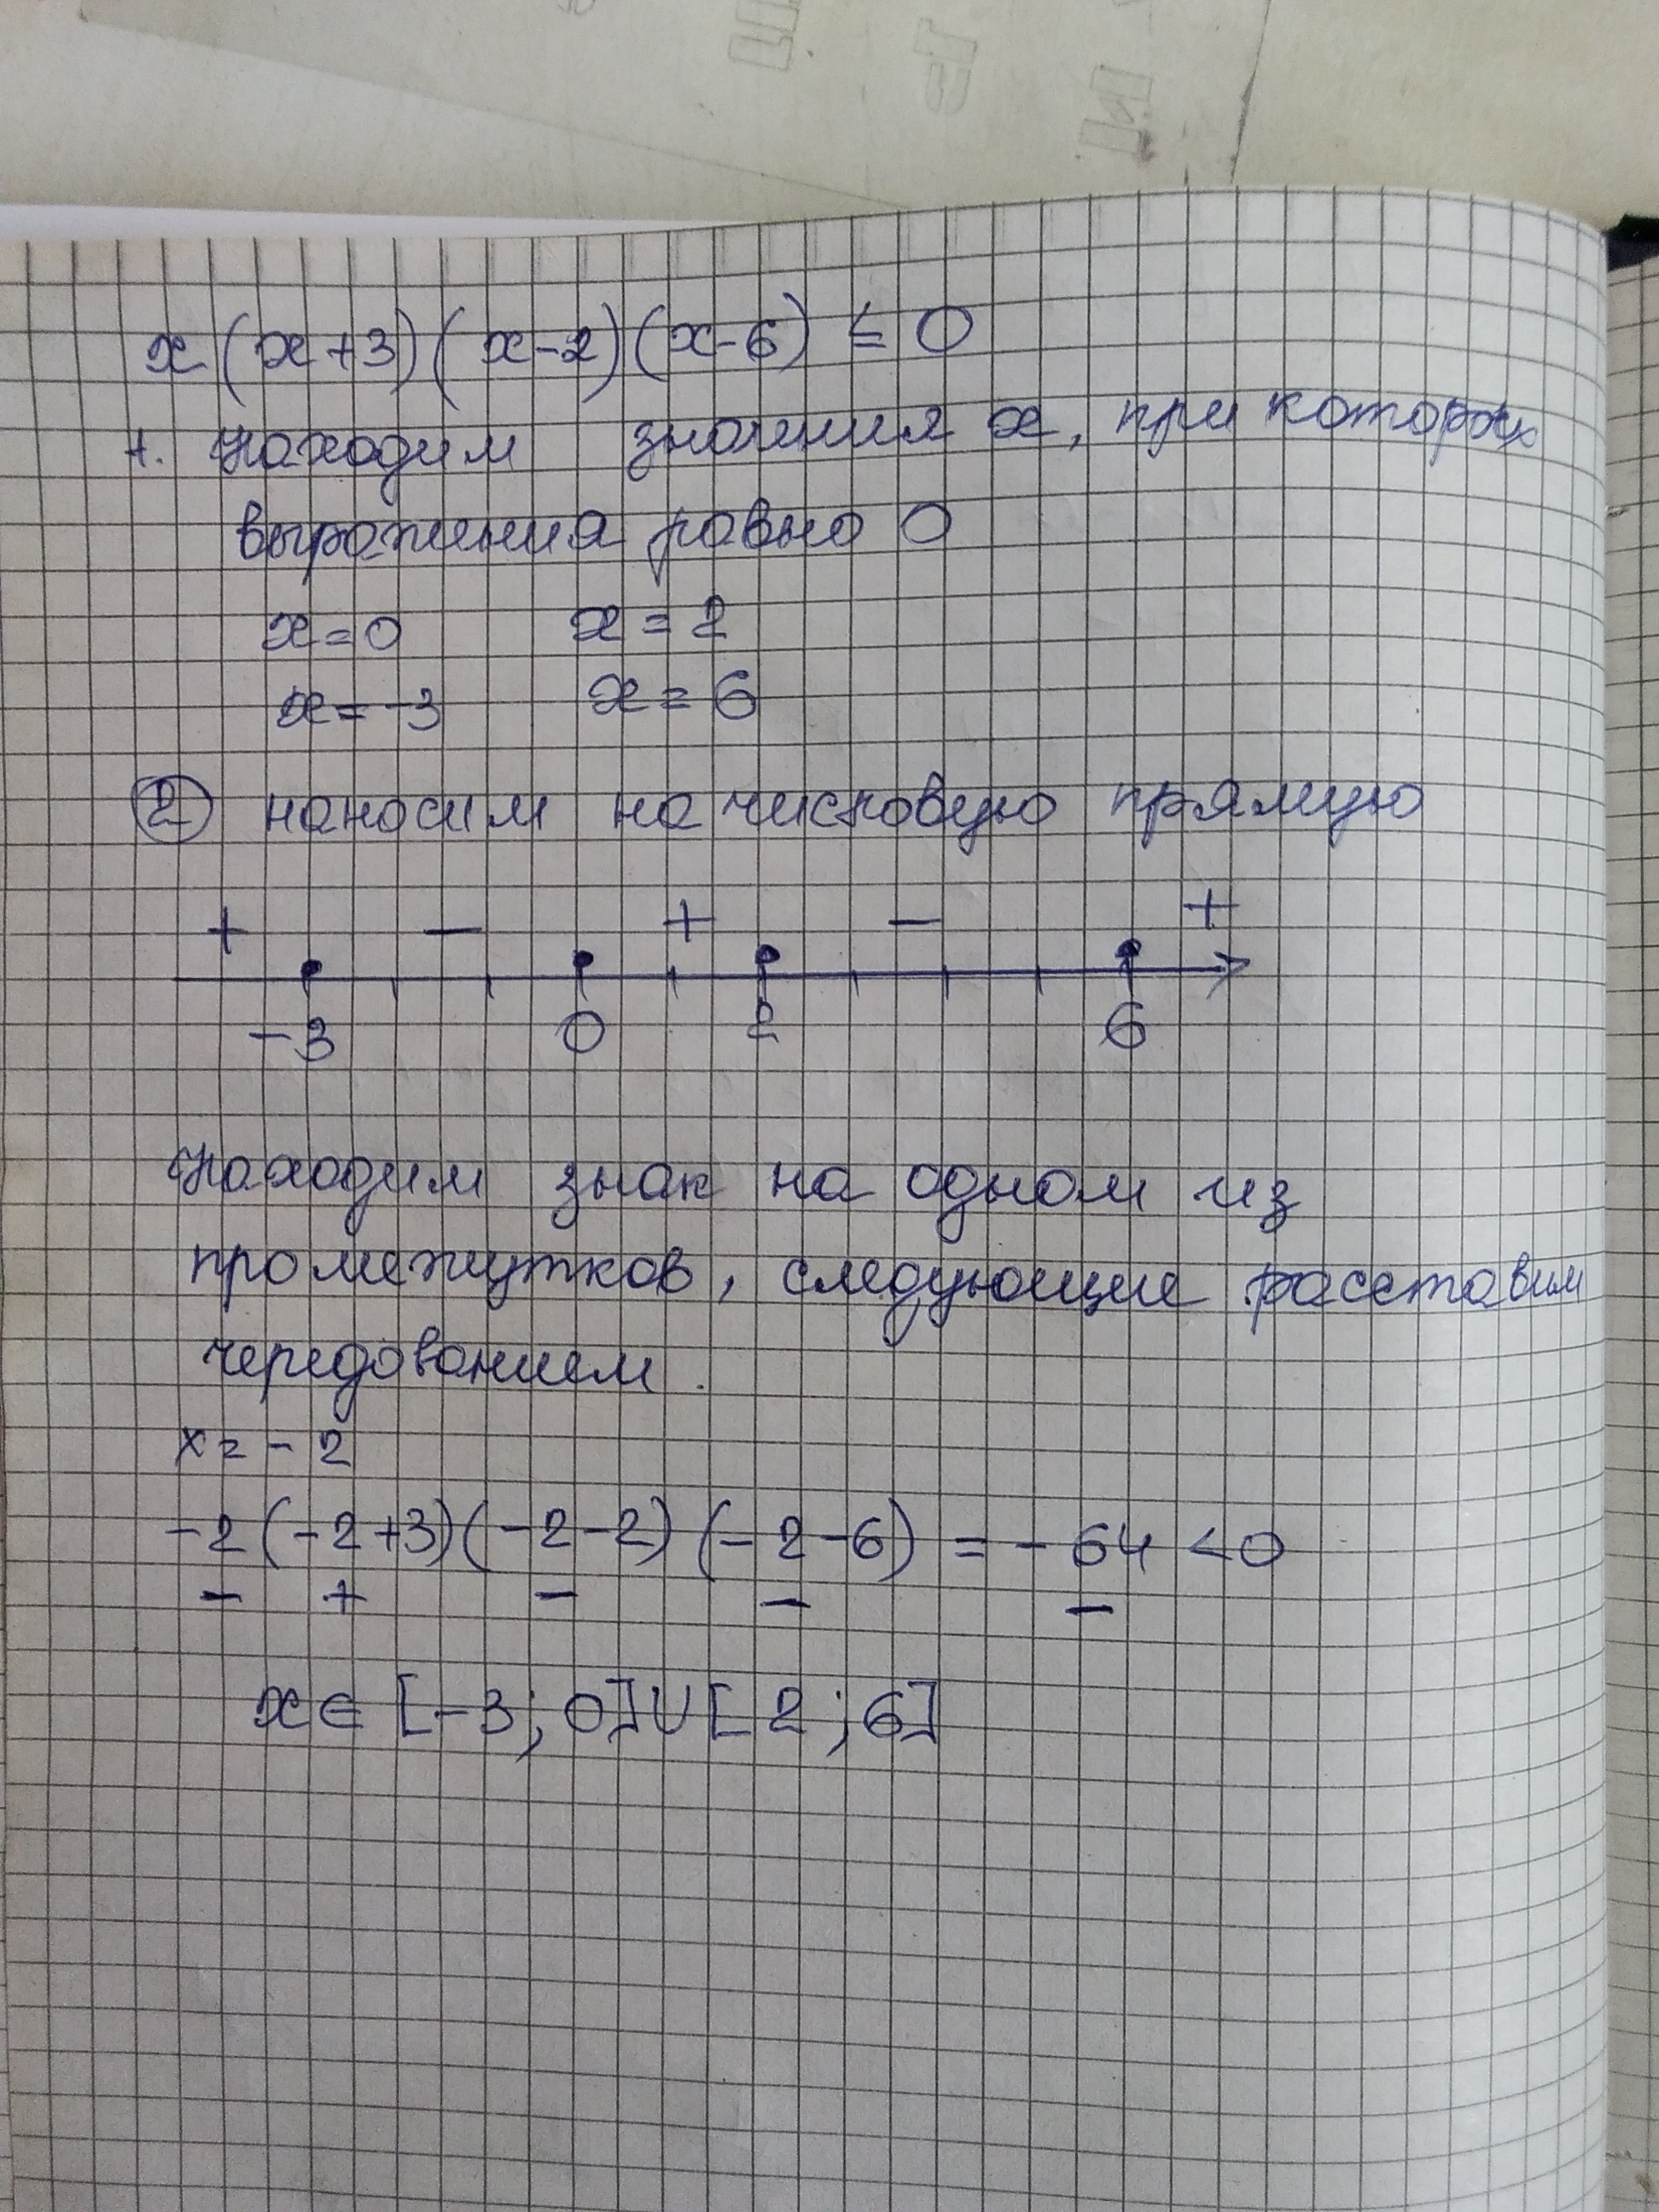 x(x+3)(x-2)(x-6) ≤ 0
1. находим значения x, при которых
выражения равно 0
x=0 x=2
x=-3 x=6
② наносим на числовую прямую
+ − + − +
-3 0 2 6
находим знак на одном из
промежутков, следующие расставим
чередованием.
x=-2
-2(-2+3)(-2-2)(-2-6) = -64 <0
− + − − −
x∈[-3;0]∪[2;6]